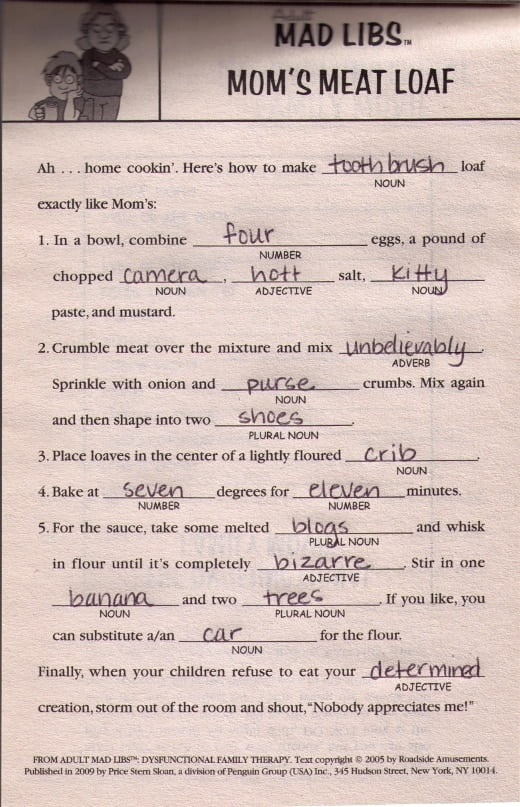 Adult
MAD LIBS™
MOM'S MEAT LOAF
Ah . . . home cookin'. Here's how to make toothbrush loaf
NOUN
exactly like Mom's:
1. In a bowl, combine four eggs, a pound of
NUMBER
chopped camera, hott salt, kitty
NOUN ADJECTIVE NOUN
paste, and mustard.
2. Crumble meat over the mixture and mix unbelievably.
ADVERB
Sprinkle with onion and purse crumbs. Mix again
NOUN
and then shape into two shoes.
PLURAL NOUN
3. Place loaves in the center of a lightly floured crib.
NOUN
4. Bake at seven degrees for eleven minutes.
NUMBER NUMBER
5. For the sauce, take some melted blogs and whisk
PLURAL NOUN
in flour until it's completely bizarre. Stir in one
ADJECTIVE
banana and two trees. If you like, you
NOUN PLURAL NOUN
can substitute a/an car for the flour.
NOUN
Finally, when your children refuse to eat your determined
ADJECTIVE
creation, storm out of the room and shout, "Nobody appreciates me!"
FROM ADULT MAD LIBS™: DYSFUNCTIONAL FAMILY THERAPY. Text copyright © 2005 by Roadside Amusements.
Published in 2009 by Price Stern Sloan, a division of Penguin Group (USA) Inc., 345 Hudson Street, New York, NY 10014.